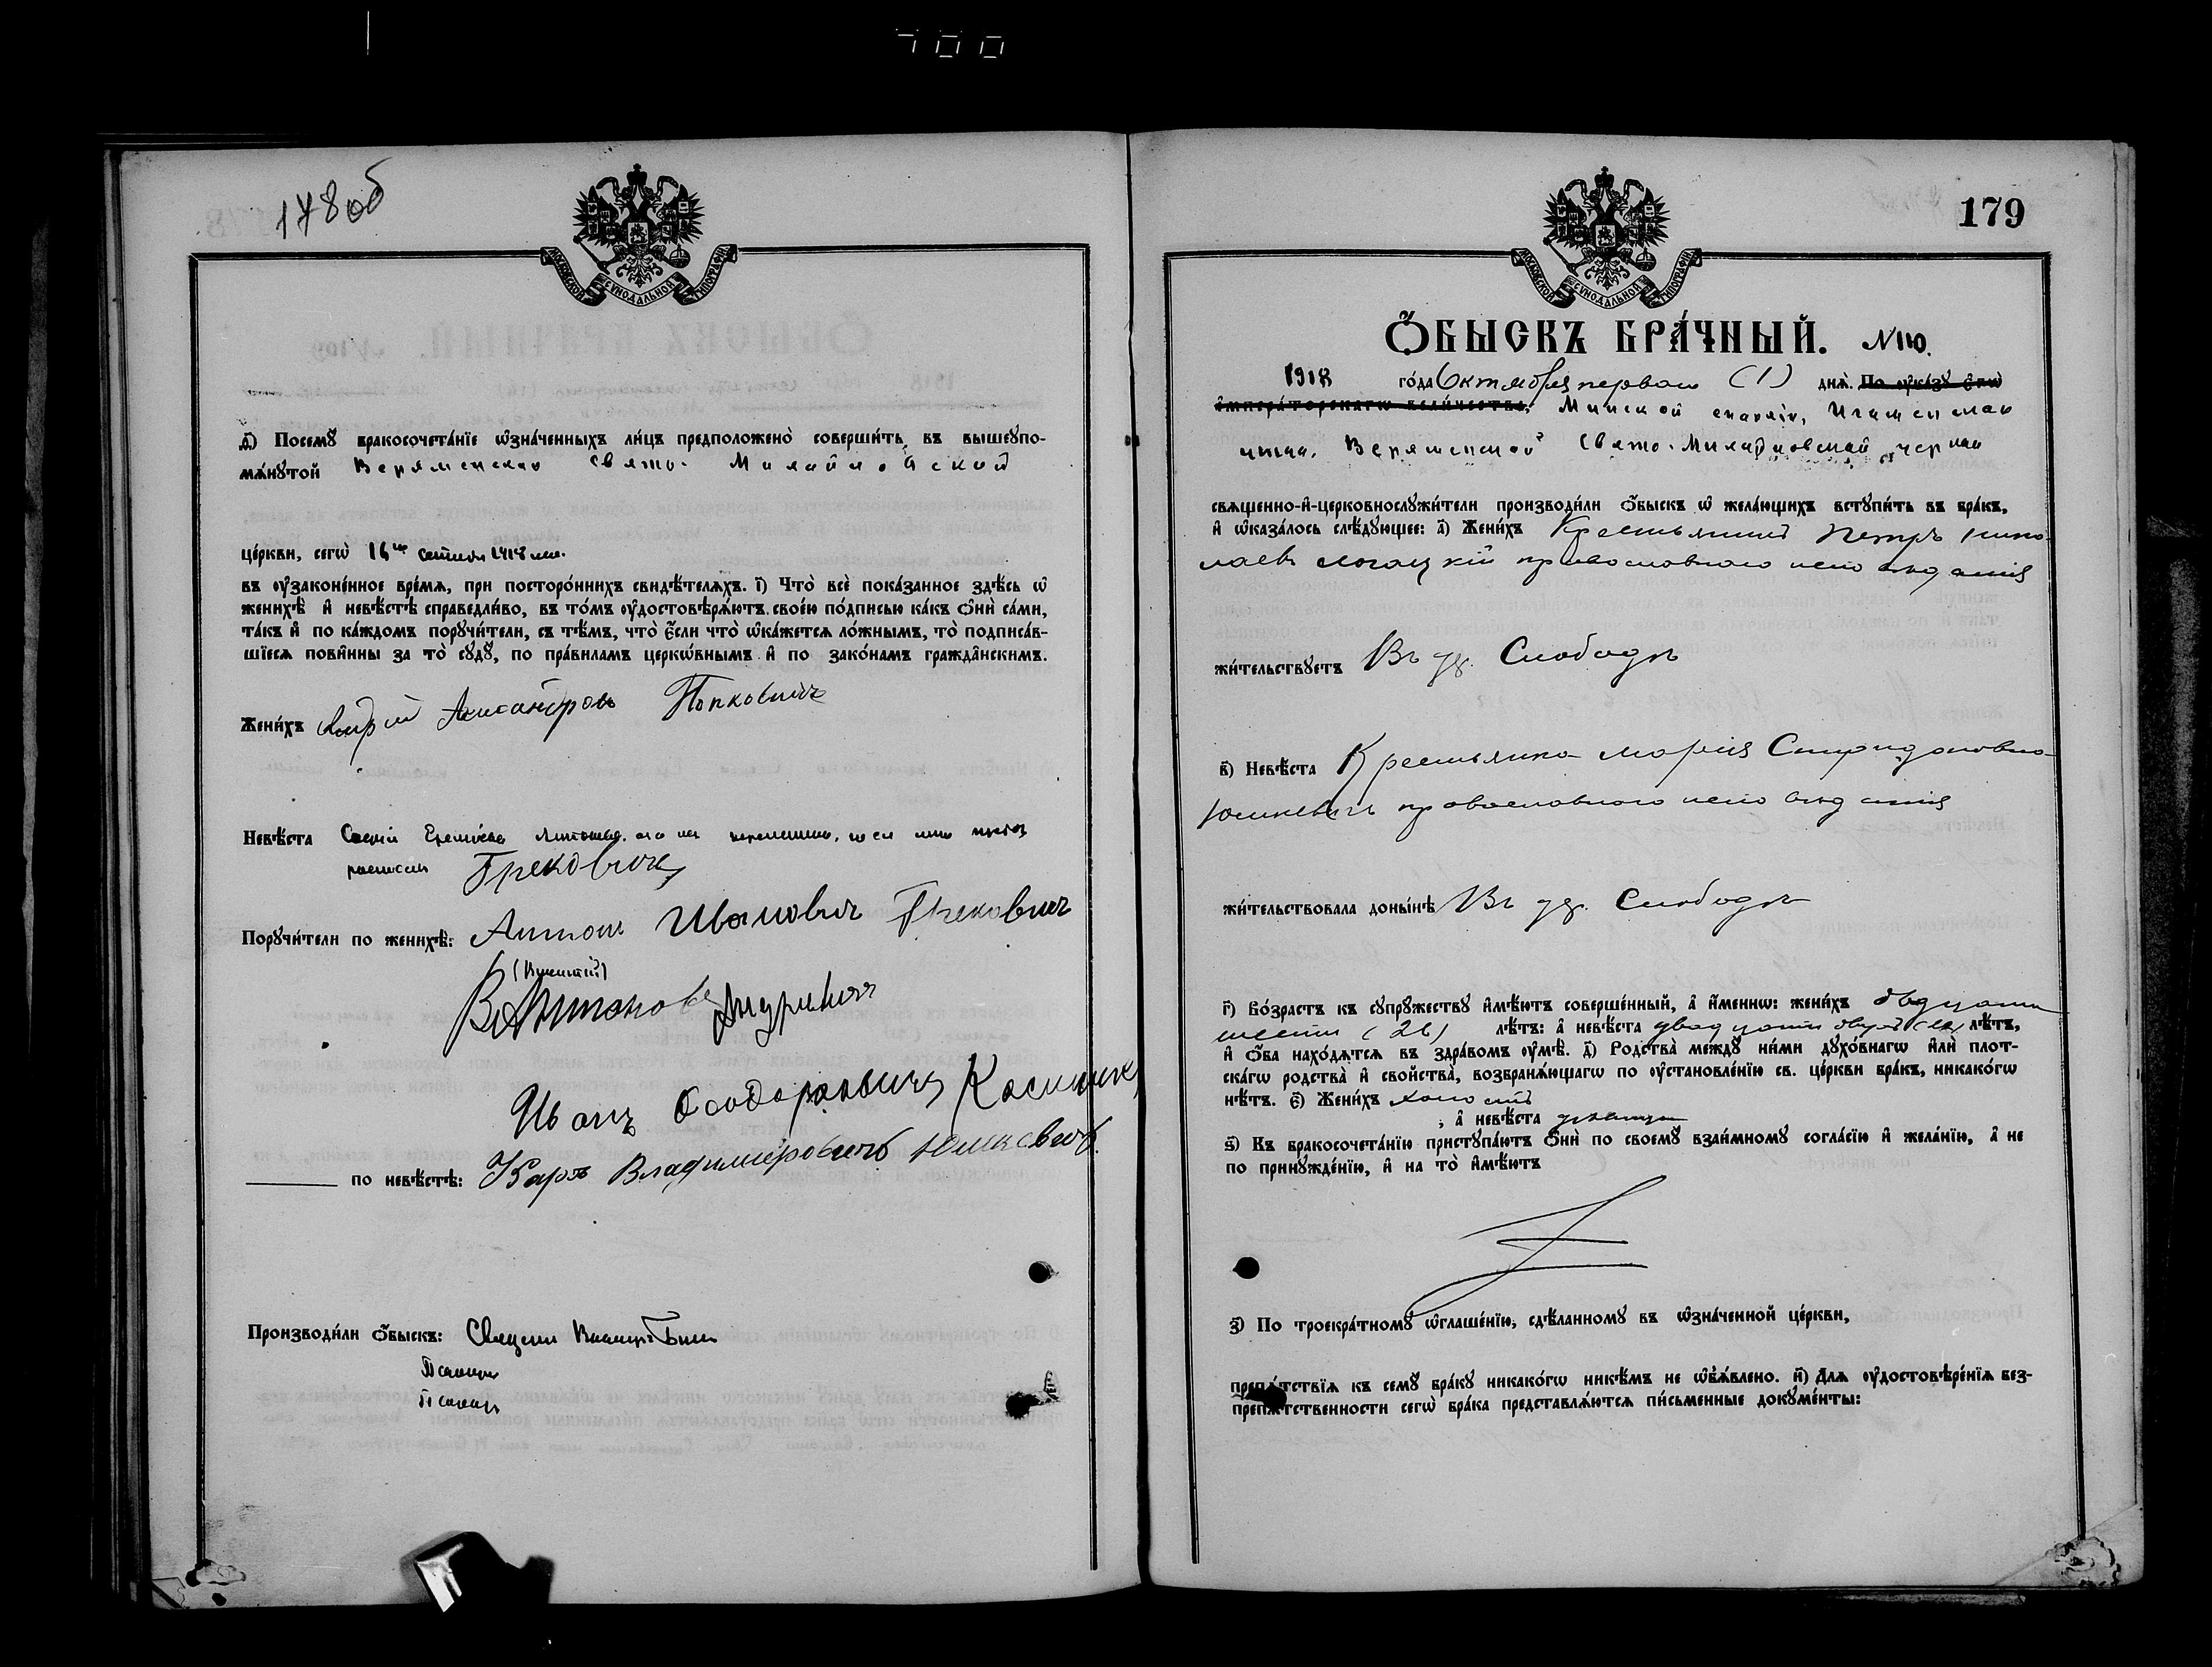 700
178об
МОСКОВСКОЙ СѴНОДАЛЬНОЙ ТИПОГРАФІИ
д҃) Посемꙋ̀ бракосочета́нїе ѡ҆зна́ченныхъ ли́цъ предположено̀ соверши́ть въ вышеꙋпо-
мѧ́нꙋтой Верхменской Свято- Михайловской
це́ркви, сегѡ̀ 16го
въ ᲂу҆зако́ненное вре́мѧ, при посторо́ннихъ свидѣ́телѧхъ. і҃) Что̀ всѐ пока́занное здѣ́сь ѡ҆
женихѣ̀ и҆ невѣ́стѣ справедли́во, въ то́мъ ᲂу҆достовѣрѧ́ютъ свое́ю по́дписью ка́къ ѻ҆нѝ са́ми,
та́къ и҆ по ка́ждомъ порꙋчи́тели, съ тѣ́мъ, что̀ є҆́сли что̀ ѡ҆ка́жетсѧ ло́жнымъ, то̀ подписа́в-
шїесѧ пови́нны за то̀ сꙋдꙋ̀, по пра́виламъ церкѡ́внымъ и҆ по зако́намъ гражда́нскимъ.
Жени́хъ Попковичъ
Невѣ́ста
Грековичъ
Порꙋчи́тели по женихѣ̀: Антонъ Ивановичъ Грековичъ
Иванъ Ѳеодоровичъ
по невѣ́стѣ: Карпъ Владимировичъ Юшкевичъ
Производи́ли ѻ҆́быскъ:
Псаломщ
Псаломщ
179
МОСКОВСКОЙ СѴНОДАЛЬНОЙ ТИПОГРАФІИ
Ѻ҆́БЫСКЪ БРА́ЧНЫЙ. №110.
1918 го́да Октября перваго (1) днѧ̀. По ᲂу҆ка́зꙋ є҆гѡ̀
и҆мпера́торскагѡ вели́чества, Минской епархіи, Игуменскаго
уѣзда, Верхменской Свято-Михайловской церкви
свѧще́нно-и҆-церковнослꙋжи́тели производи́ли ѻ҆́быскъ ѡ҆ жела́ющихъ встꙋпи́ть въ бра́къ,
и҆ ѡ҆каза́лось слѣ́дꙋющее: а҃) Жени́хъ Крестьянинъ Петръ Нико-
лаевъ Логацкій православнаго исповѣданія
жи́тельствꙋетъ Въ д. Слободѣ
в҃) Невѣ́ста Крестьянка Марія Спиридоновна
Юшкевичъ православнаго исповѣданія
жи́тельствовала доны́нѣ Въ д. Слободѣ
г҃) Во́зрастъ къ сꙋпрꙋ́жествꙋ и҆мѣ́ютъ соверше́нный, а҆ и҆́меннѡ: жени́хъ двадцати
шести (26) лѣ́тъ: а҆ невѣ́ста двадцати двухъ лѣ́тъ,
и҆ ѻ҆́ба нахо́дѧтсѧ въ здра́вомъ ᲂу҆мѣ̀. д҃) Родства̀ междꙋ̀ ни́ми дꙋхо́внагѡ и҆лѝ плот-
ска́гѡ родства̀ и҆ сво́йства̀, возбранѧ́ющагѡ по ᲂу҆становле́нїю св. це́ркви бра́къ, никако́гѡ
нѣ́тъ. є҃) Жени́хъ холостъ
; а҆ невѣ́ста дѣвица
ѕ҃) Къ бракосочета́нїю пристꙋпа́ютъ ѻ҆нѝ по своемꙋ̀ взаи́мномꙋ согла́сїю и҆ жела́нїю, а҆ не
по принꙋжде́нїю, и҆ на то̀ и҆мѣ́ютъ
з҃) По троекра́тномꙋ ѡ҆глаше́нїю, сдѣ́ланномꙋ въ ѡ҆зна́ченной це́ркви,
препѧ́тствїѧ къ семꙋ̀ бра́кꙋ никако́гѡ никѣ́мъ не ѡ҆б̾ѧ́влено. и҃) Длѧ ᲂу҆достовѣре́нїѧ без-
препѧ́тственности сегѡ̀ бра́ка представлѧ́ютсѧ пи́сьменные докꙋме́нты: